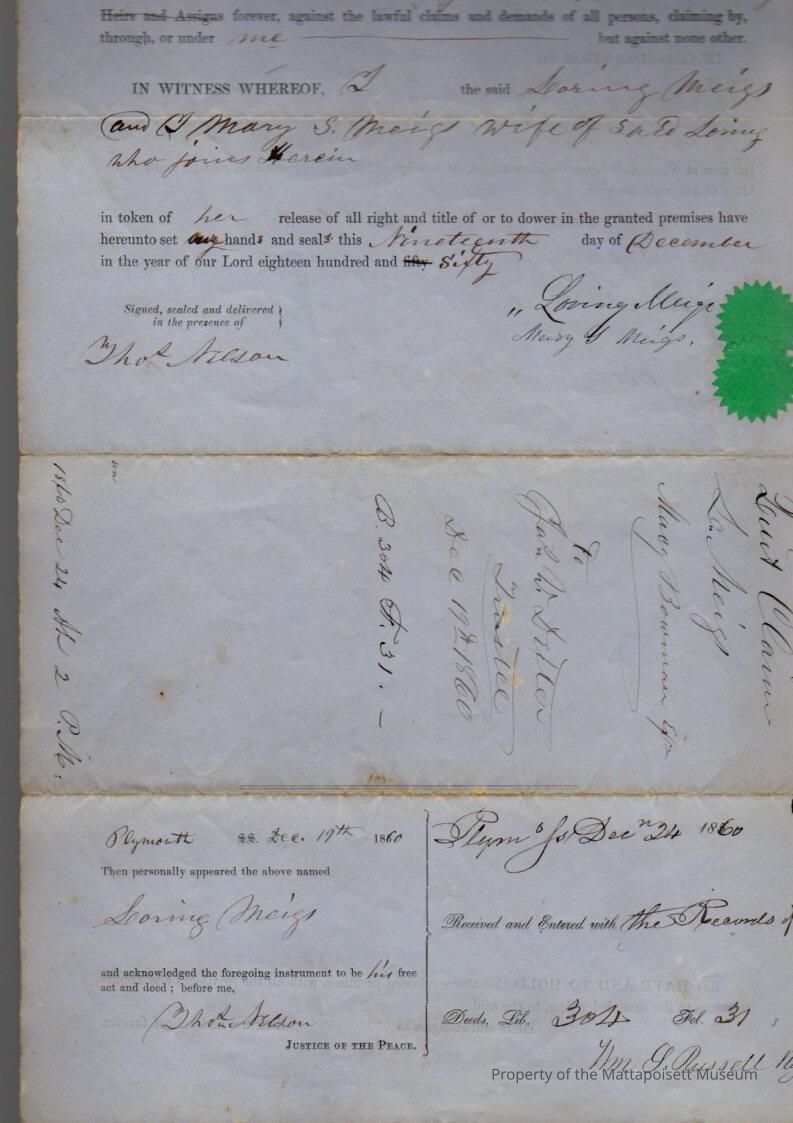 Heirs and Assigns forever, against the lawful claims and demands of all persons, claiming by,
through, or under me but against none other.
IN WITNESS WHEREOF, I the said Loring Meigs
and I Mary S. Meigs wife of said Loring
who joins Herein
in token of her release of all right and title of or to dower in the granted premises have
hereunto set our hands and seals this Nineteenth day of December
in the year of our Lord eighteen hundred and fifty Sixty
Signed, sealed and delivered
in the presence of
Thos Nelson
Loring Meigs
Mary S Meigs.
Quit Claim
Lo. Meigs
to
Trustee
Dec 19th 1860
B. 304 F. 31.
1860 Dec 24 At 2 P.M.
Plymouth SS. Dec. 19th 1860
Then personally appeared the above named
Loring Meigs
and acknowledged the foregoing instrument to be his free
act and deed; before me,
Thos Nelson
JUSTICE OF THE PEACE.
Plymo Ss Decr 24 1860
Received and Entered with the Records of
Deeds, Lib. 304 Fol. 31
Wm S. Russell
Property of the Mattapoisett Museum